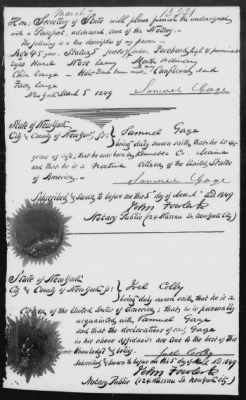 March 7
Hon. Secretary of State will please furnish the undersigned
with a Passport, addressed, care of the Notary.
The following is a true description of my person
Age 45 yrs. Stature 5 feet inches. Forehead high & prominent
Eyes Hazel Nose Long Mouth Ordinary
Chin Large Hair Dark Complexion dark
Face large
New York March 5 1849 Samuel Gage
State of New York
City & County of New York ss: Samuel Gage
being duly sworn saith, that he is 45
years of age; that he was born in Maine
and that he is a native Citizen of the United States
of America. Samuel Gage
Subscribed & Sworn to before me this 5th day of March AD 1849
John Fowler Jr
Notary Public (124 Nassau St. New York City)
State of New York
City & County of New York ss: Joel Colby
being duly sworn saith that he is a
Citizen of the United States of America; that he is personally
acquainted with Samuel Gage
and that the declarations of said Gage
in his above affidavit are true to the best of his
Knowledge & belief. Joel Colby
Subscribed & Sworn to before me this 5th day of March AD 1849
John Fowler Jr
Notary Public (124 Nassau St. New York City)